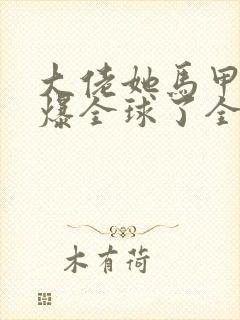 大佬她馬甲
爆全球了全
木有荷